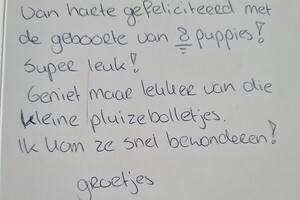 Van harte gefeliciteerd met
de geboorte van 8 puppies!
Super leuk!
Geniet maar lekker van die
kleine pluizebolletjes.
Ik kom ze snel bewonderen!
groetjes